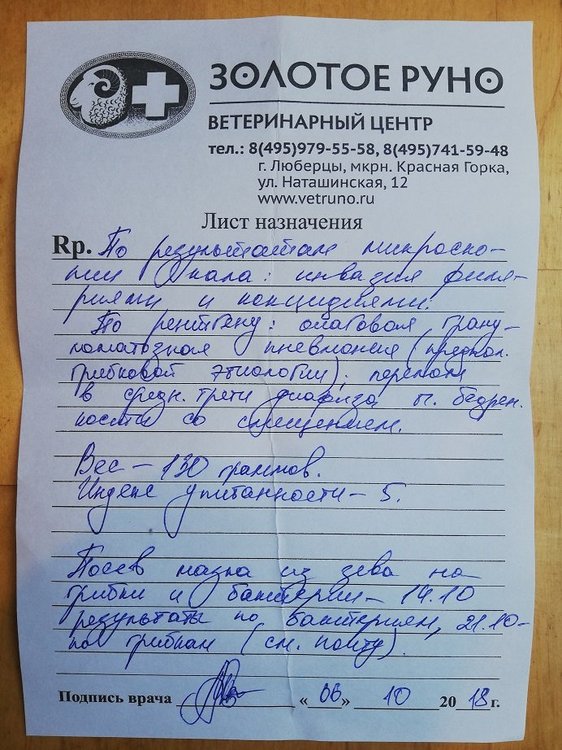 ЗОЛОТОЕ РУНО
ВЕТЕРИНАРНЫЙ ЦЕНТР
тел.: 8(495)979-55-58, 8(495)741-59-48
г. Люберцы, мкрн. Красная Горка,
ул. Наташинская, 12
www.vetruno.ru
Лист назначения
Rp. По результатам микроско-
пии кала: инвазия филя-
риями и кокцидиями.
По рентгену: очаговая грану-
ломатозная пневмония (предпол.
грибковой этиологии); перелом
в средн. трети диафиза п. бедрен.
кости со смещением.
Вес - 130 граммов.
Индекс упитанности - 5.
Посев мазка из зева на
грибки и бактерии - 14.10
результаты по бактериям, 21.10 -
по грибкам (см. почту).
Подпись врача «06» 10 2018 г.